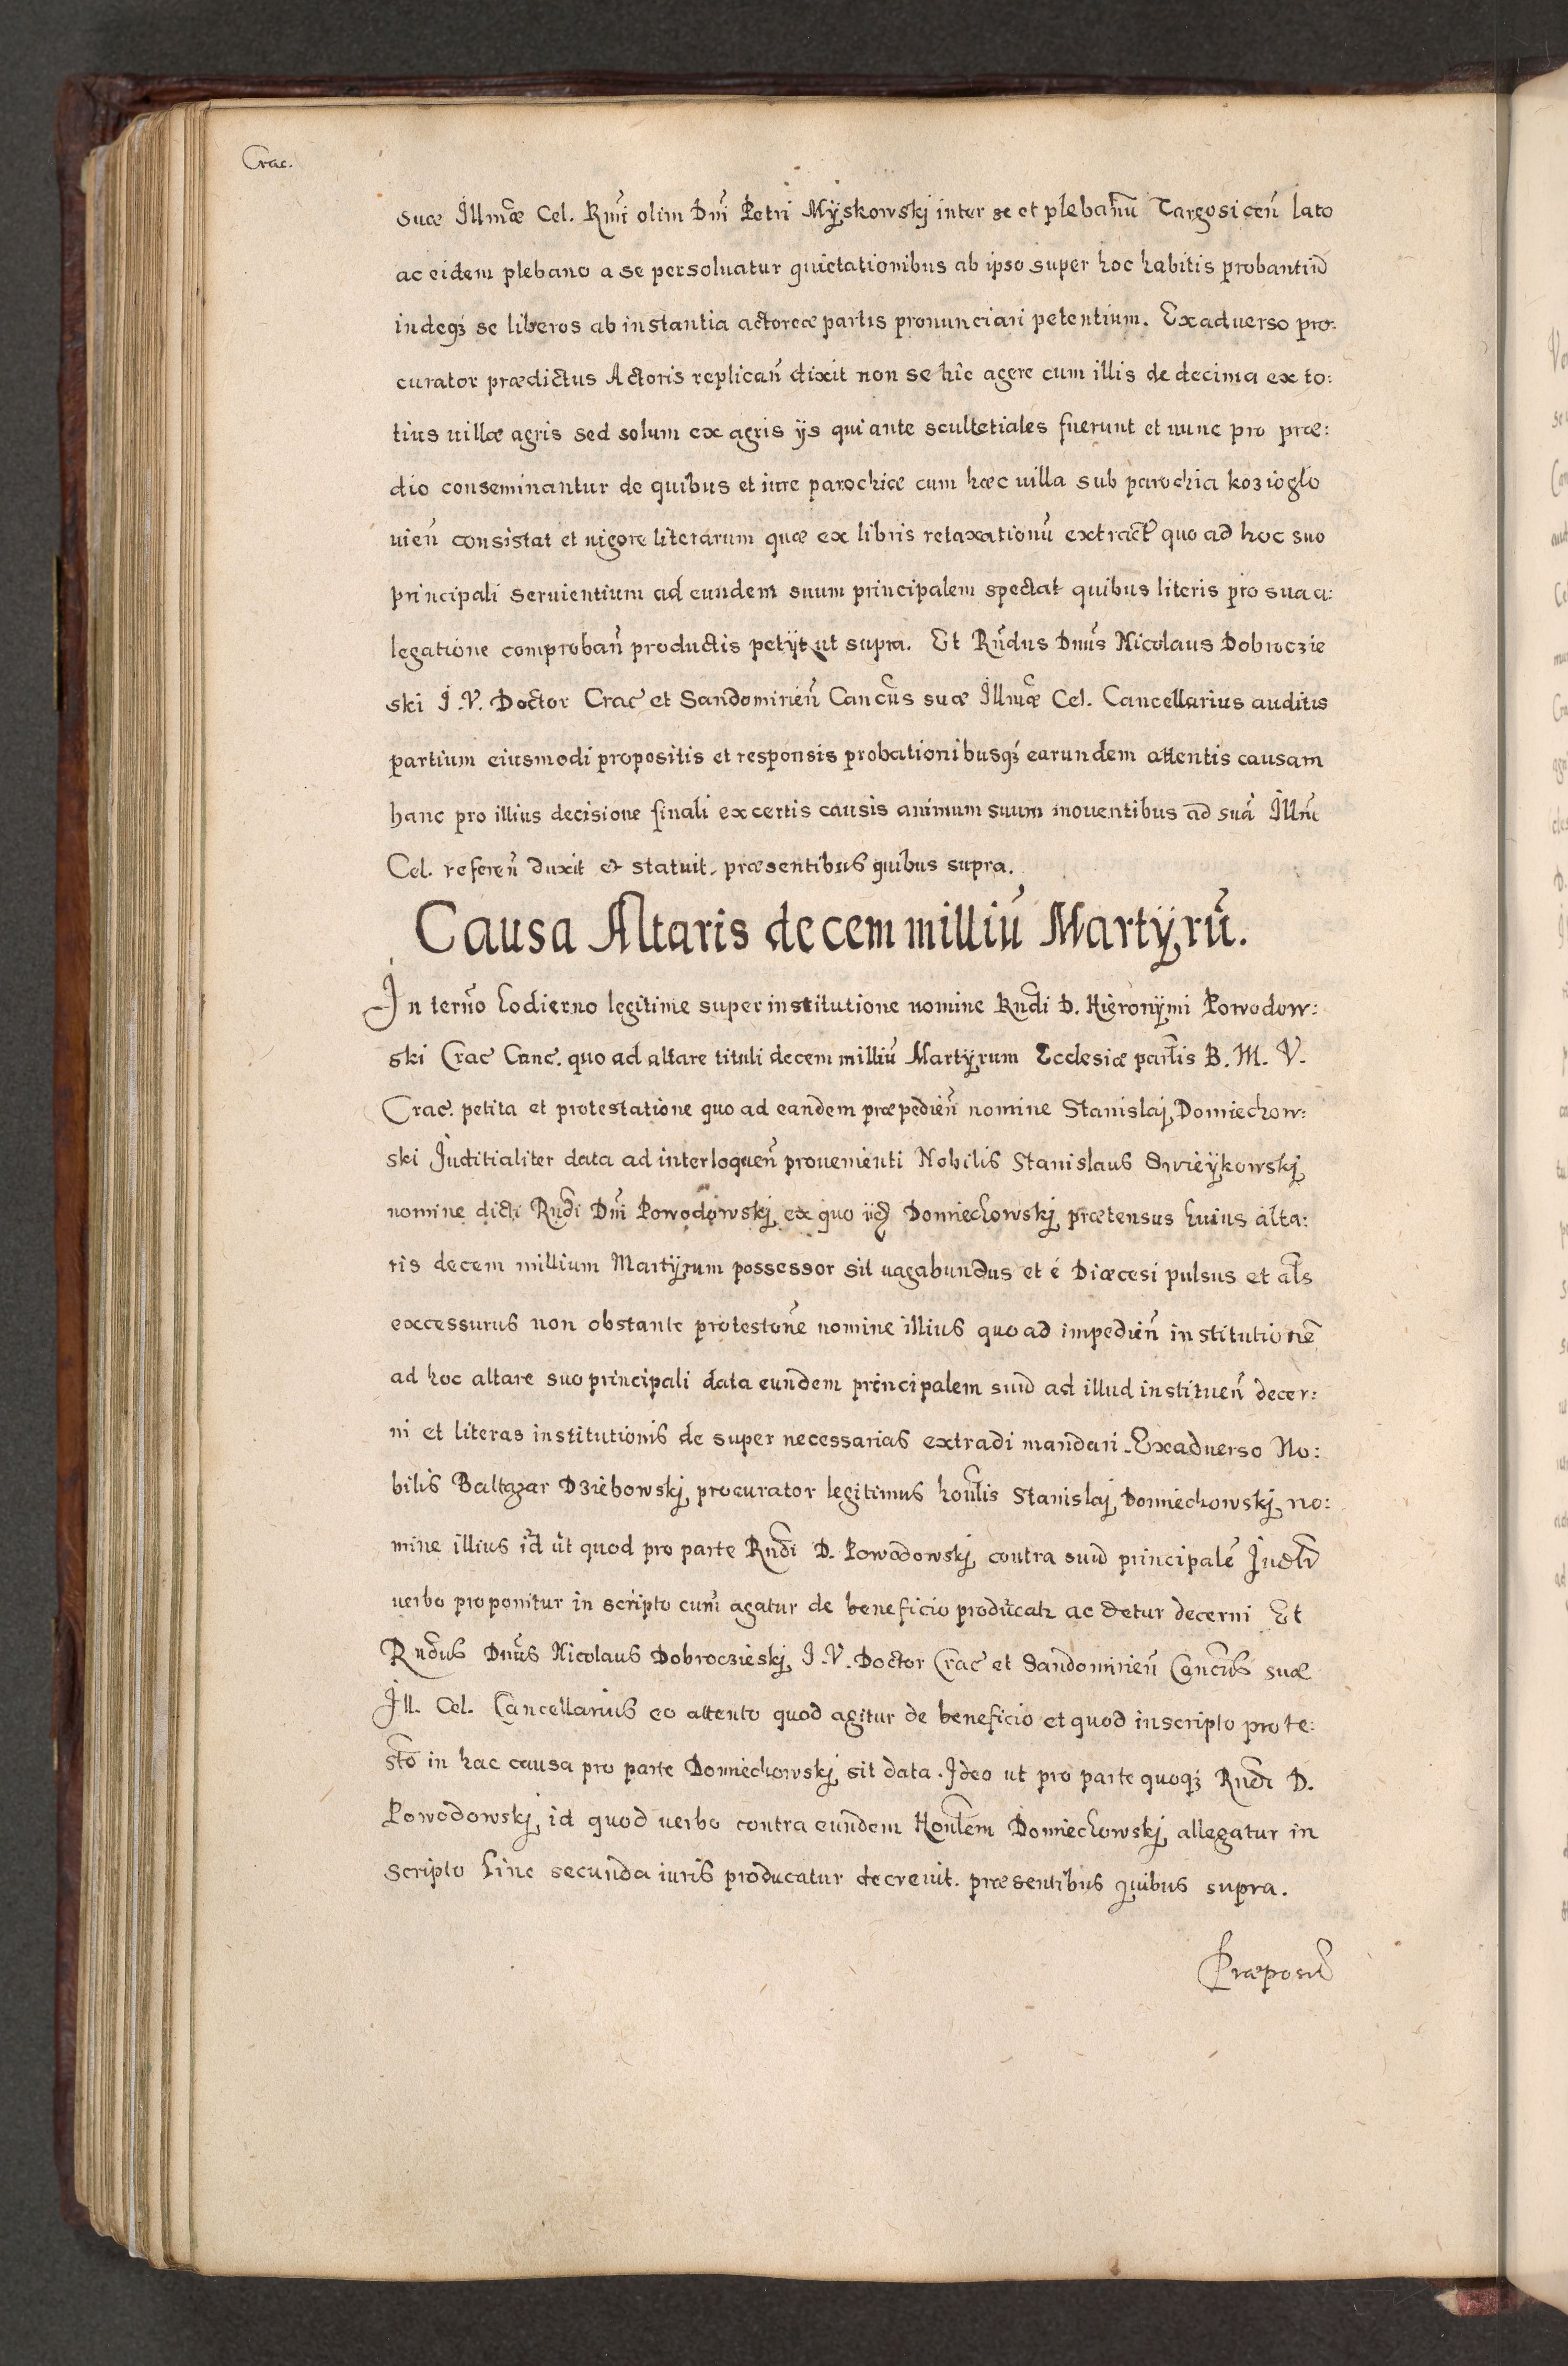 Crac.
suæ Illmæ Cel. Rmi olim Dni Petri Mÿskowskj inter se et plebanũ Targosiceñ lato
ac eidem plebano a se persoluatur quictationibus ab ipso super hoc habitis probantiũ
indeqʒ se liberos ab instantia actoreæ partis pronunciari petentium. Exaduerso pro:
curator prædictus Actoris replicañ dixit non se hîc agere cum illis de decima ex to:
tius uillæ agris sed solum ex agris ÿs qui ante scultetiales fuerunt et nunc pro præ:
dio conseminantur de quibus et iure parochiæ cum hæc uilla sub parochia kozioglo
uieñ consistat et uigore literarum quæ ex libris retaxationũ extract quo ad hoc suo
principali seruientium ad eundem suum principalem spectat quibus literis pro sua a:
legatione comprobañ productis petÿt ut supra. Et Rndus Dnus Nicolaus Dobroczie
ski I.V. Doctor Crac et Sandomirieñ Cancus suæ Illmæ Cel. Cancellarius auditis
partium eiusmodi propositis et responsis probationibusqʒ earundem attentis causam
hanc pro illius decisione finali ex certis causis animum suum mouentibus ad suã Illm
Cel. refereñ duxit et statuit. præsentibus quibus supra.
Causa Altaris decem milliũ Martÿrũ.
In termo hodierno legitime super institutione nomine Rndi D. Hieronÿmi Powodow:
ski Crac Canc. quo ad altare tituli decem milliũ Martÿrum Ecclesiæ partis B. M. V.
Crac. petita et protestatione quo ad eandem præpedieñ nomine Stanislaj Domiechow:
ski Juditialiter data ad interloqueñ prouenienti Nobilis Stanislaus Swieÿkowskj
nomine dicti Rndi Dni Powodowskj ex quo iid Domiechowskj prætensus huius alta:
ris decem millium Martÿrum possessor sit uagabundus et é Diæcesi pulsus et als
excessurus non obstante protestone nomine illius quo ad impedieñ institutionẽ
ad hoc altare suo principali data eundem principalem suũ ad illud institueñ decer:
ni et literas institutionis de super necessarias extradi mandari. Exaduerso No:
bilis Baltazar Dziebowskj procurator legitimus honlis Stanislaj Domiechowskj no:
mine illius id ut quod pro parte Rndi D. Powodowskj contra suũ principalẽ Judlr
uerbo proponitur in scripto cum agatur de beneficio producatr ac detur decerni Et
Rndus Dnus Nicolaus Dobroczieskj I.V. Doctor Crac et Sandomirieñ Cancus suæ
Ill. Cel. Cancellarius eo attento quod agitur de beneficio et quod in scripto prote:
sto in hac causa pro parte Domiechowskj sit data. Ideo ut pro parte quoqʒ Rndi D.
Powodowskj id quod uerbo contra eundem Honlem Domiechowskj allegatur in
scripto hinc secunda iuris producatur decreuit. præsentibus quibus supra.
Præposit